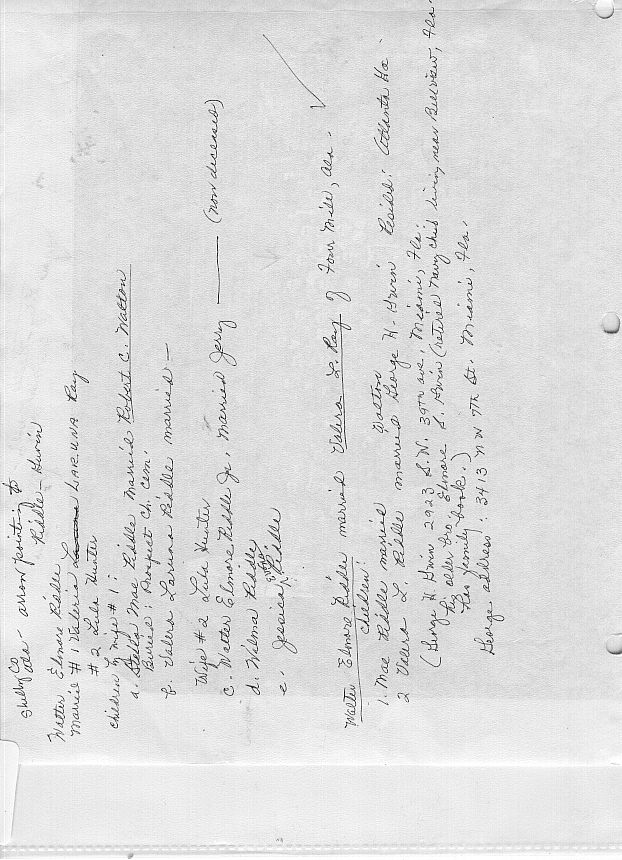 Shelby Co
Ala - arrow pointing to
Riddle - Irwin
Walter Elmore Riddle
Married #1 Valeria LARUNA Ray
#2 Lula Hunter
Children of wife #1:
a. Stella Mae Riddle Married Robert C. Walton
Buried: Prospect Ch. Cem.
b. Valera Laruna Riddle married —
Wife #2 Lula Hunter
c. Walter Elmore Riddle Jr., Married Jerry —— (now deceased)
d. Wilma Riddle
e. Jessica Riddle
Walter Elmore Riddle married Valera L. Ray of Four Mile, Ala.
Children:
1. Mae Riddle married Walton
2 Valera L. Riddle married George H. Irwin Resided: Atlanta Ga.
(George H Irwin 2923 S.W. 39th Ave, Miami, Fla.
his older bro. Elmore S. Irwin (retired Navy chief living near Bellview, Fla.
has family book.)
George address: 3413 NW 7th St. Miami, Fla.